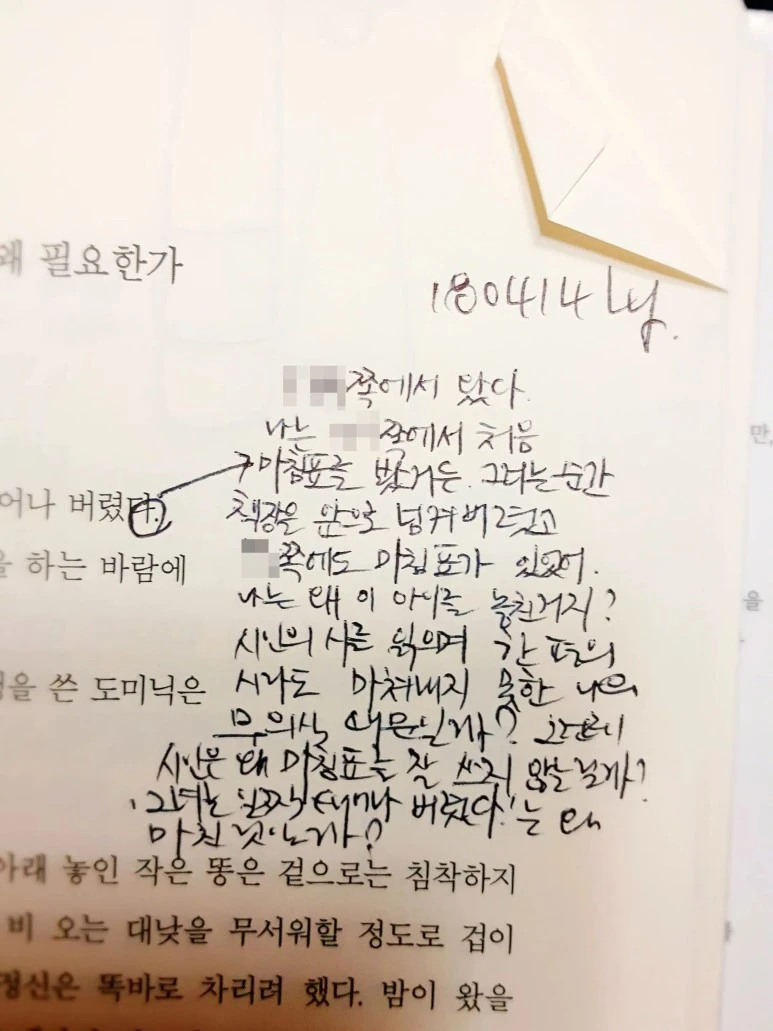 왜 필요한가
180414
쪽에서 탔다.
나는 쪽에서 처음
마침표를 봤거든. 그러는 순간
어나 버렸다.
책장을 앞으로 넘겨버렸고
을 하는 바람에
쪽에도 마침표가 있었어.
나는 왜 이 아이를 놓친거지?
시인의 시를 읽으며 한 편의
을 쓴 도미닉은
시라도 마쳐내지 못한 나의
무의식 때문일까?
시인은 왜 마침표를 잘 쓰지 않는 걸까?
버렸다.'는 왜
마친 것일까?
아래 놓인 작은 똥은 겉으로는 침착하지
비 오는 대낮을 무서워할 정도로 겁이
정신은 똑바로 차리려 했다. 밤이 왔을
만,
을